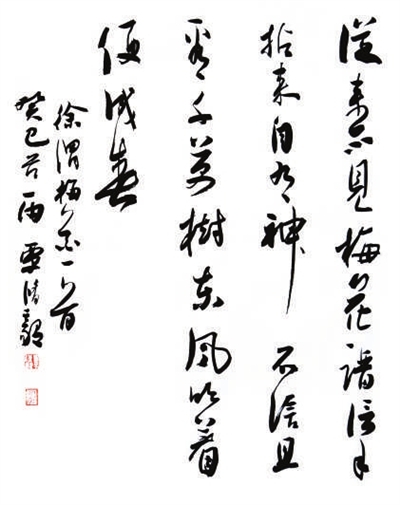 從来不見梅花譜信手
拈来自有神不信且
看千萬樹東風吹着
便成春
徐渭梅花一首
癸巳谷雨